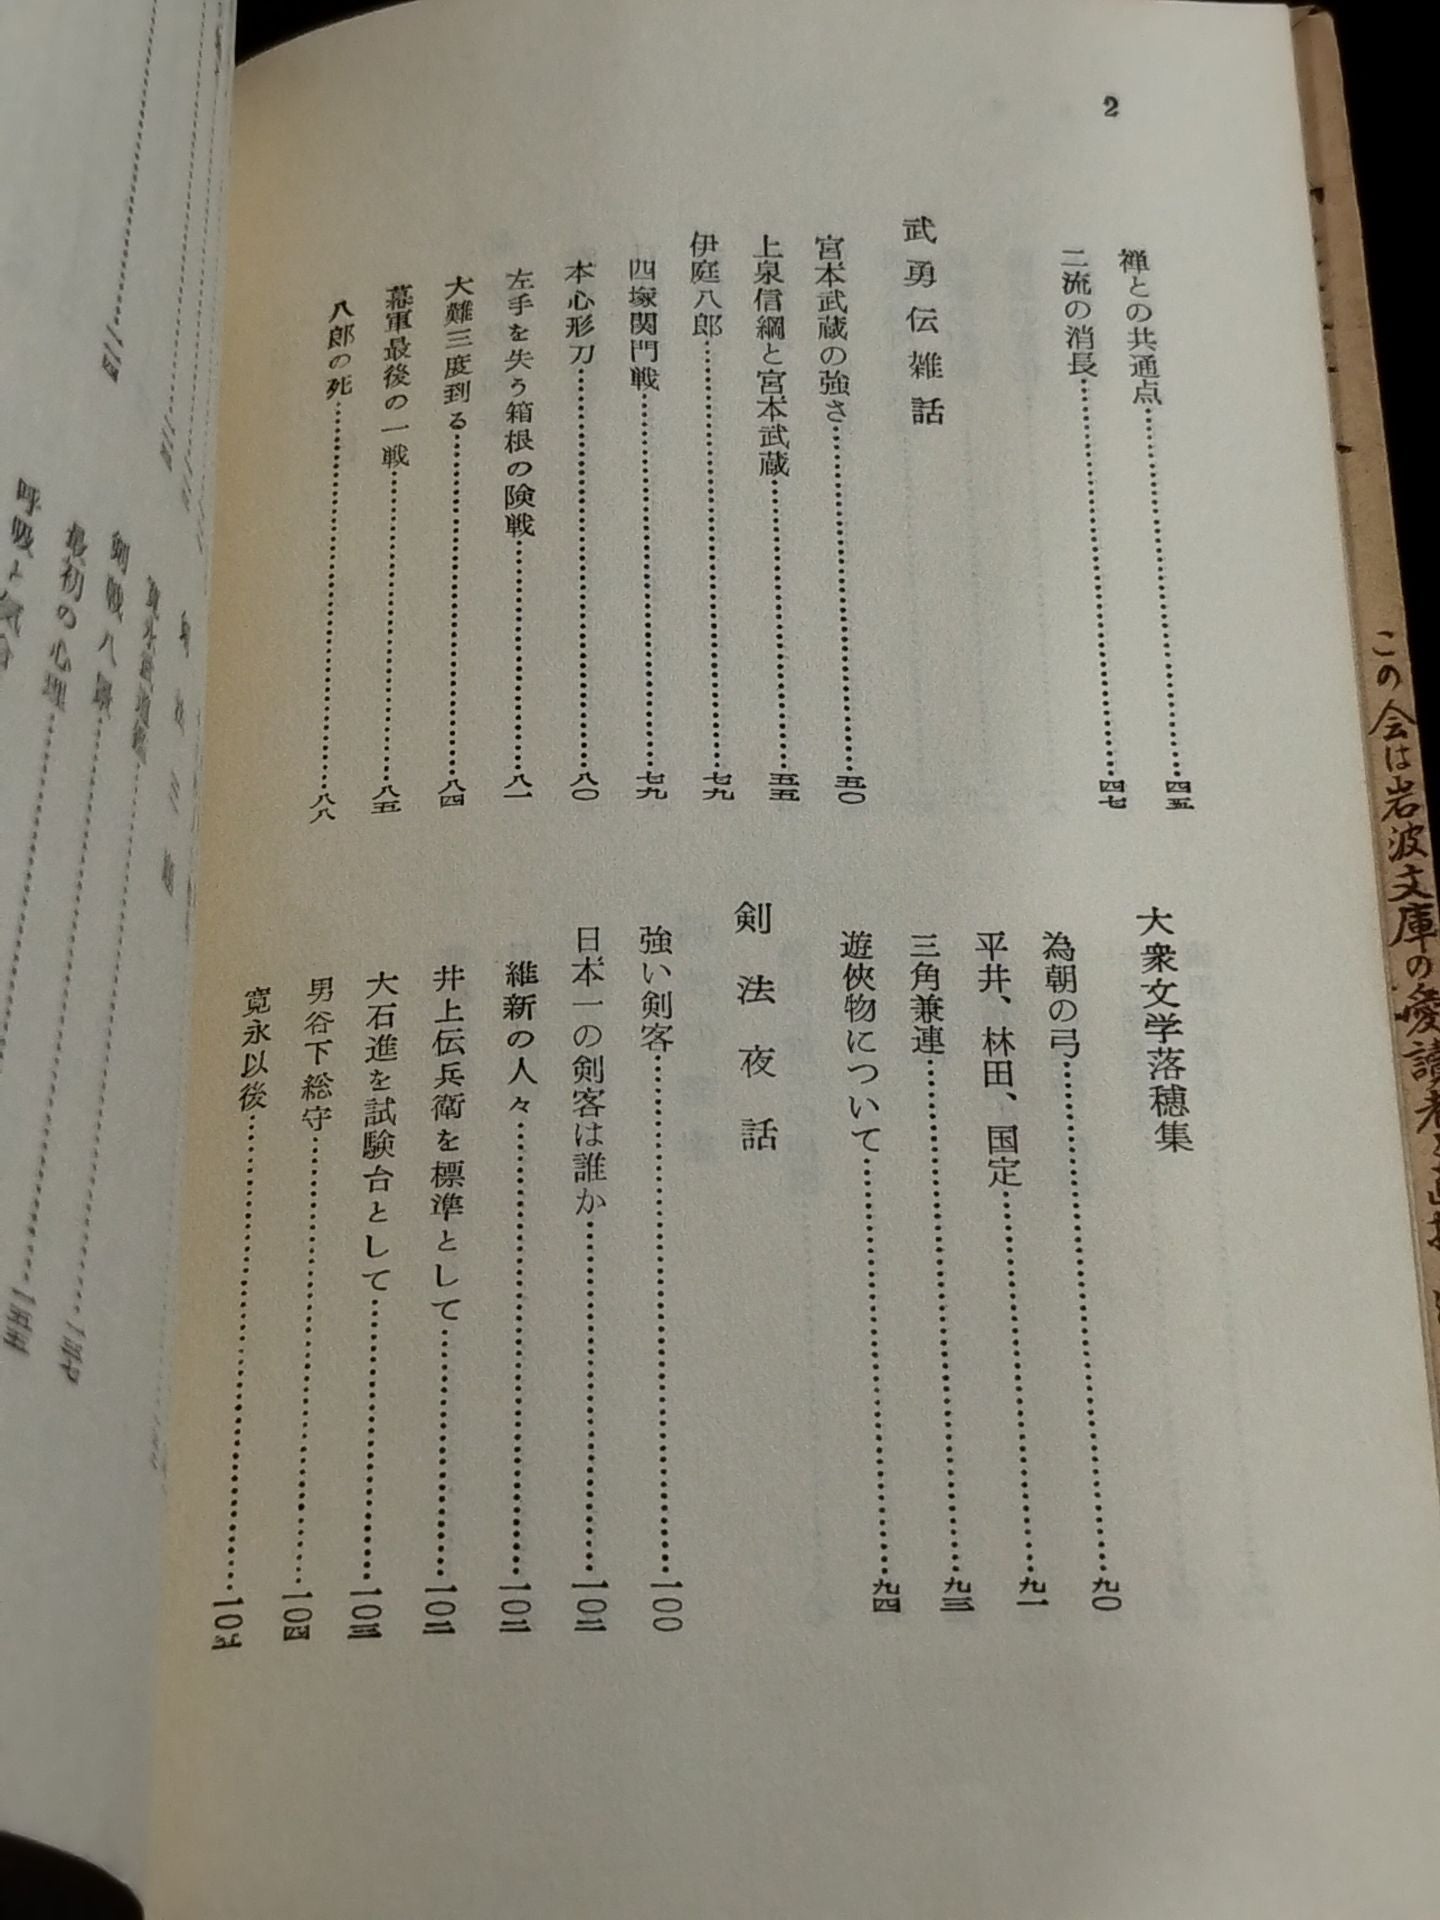 2
禅との共通点……四五
二流の消長……四七
武勇伝雑話
宮本武蔵の強さ……五〇
上泉信綱と宮本武蔵……五五
伊庭八郎……七九
四塚関門戦……七九
本心形刀……八〇
左手を失う箱根の険戦……八一
大難三度到る……八四
幕軍最後の一戦……八五
八郎の死……八八
大衆文学落穂集
為朝の弓……九〇
平井、林田、国定……九一
三角兼連……九三
遊俠物について……九四
剣法夜話
強い剣客……一〇〇
日本一の剣客は誰か……一〇二
維新の人々……一〇二
井上伝兵衛を標準として……一〇二
大石進を試験台として……一〇三
男谷下総守……一〇四
寛永以後……一〇五
この会は岩波文庫の愛讀者と
最初の心理
一五五